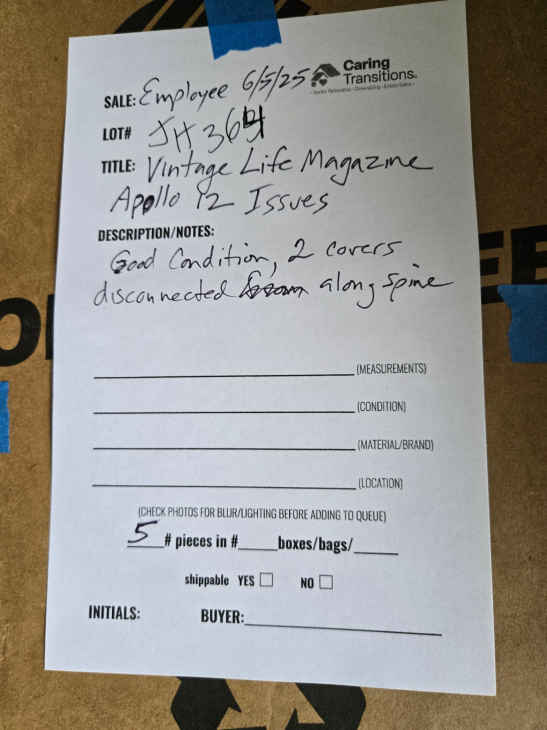 Caring
Transitions
SALE: Employee 6/5/25
LOT# JH364
TITLE: Vintage Life Magazine
Apollo 12 Issues
DESCRIPTION/NOTES:
Good Condition, 2 covers
disconnected along spine
(MEASUREMENTS)
(CONDITION)
(MATERIAL/BRAND)
(LOCATION)
(CHECK PHOTOS FOR BLUR/LIGHTING BEFORE ADDING TO QUEUE)
5 # pieces in #____ boxes/bags/____
shippable YES □ NO □
INITIALS: BUYER: